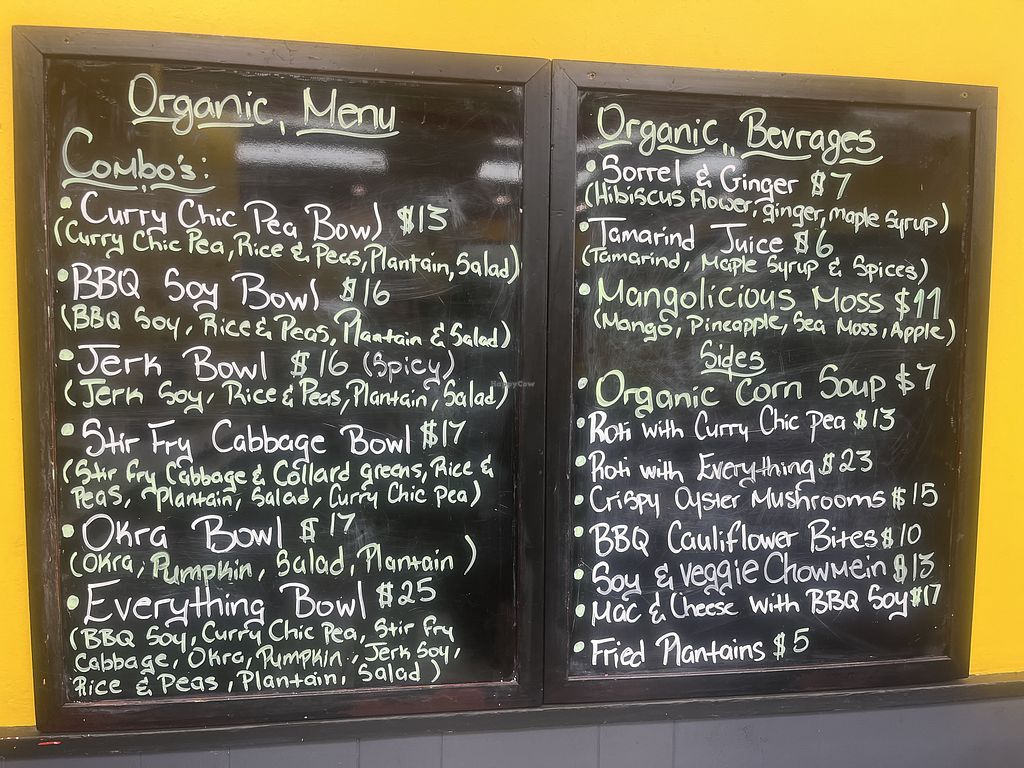 Organic Menu
Combo's:
• Curry Chic Pea Bowl $13
(Curry Chic Pea, Rice & Peas, Plantain, Salad)
• BBQ Soy Bowl $16
(BBQ Soy, Rice & Peas, Plantain & Salad)
• Jerk Bowl $16 (Spicy)
(Jerk Soy, Rice & Peas, Plantain, Salad)
• Stir Fry Cabbage Bowl $17
(Stir Fry Cabbage & Collard greens, Rice &
Peas, Plantain, Salad, Curry Chic Pea)
• Okra Bowl $17
(Okra, Pumpkin, Salad, Plantain)
• Everything Bowl $25
(BBQ Soy, Curry Chic Pea, Stir Fry
Cabbage, Okra, Pumpkin, Jerk Soy,
Rice & Peas, Plantain, Salad)
Organic Bevrages
• Sorrel & Ginger $7
(Hibiscus flower, ginger, maple syrup)
• Tamarind Juice $6
(Tamarind, Maple Syrup & Spices)
• Mangolicious Moss $11
(Mango, Pineapple, Sea Moss, Apple)
Sides
• Organic Corn Soup $7
• Roti with Curry Chic pea $13
• Roti with Everything $23
• Crispy Oyster Mushrooms $15
• BBQ Cauliflower Bites $10
• Soy & veggie Chowmein $13
• Mac & Cheese with BBQ Soy $17
• Fried Plantains $5
HappyCow